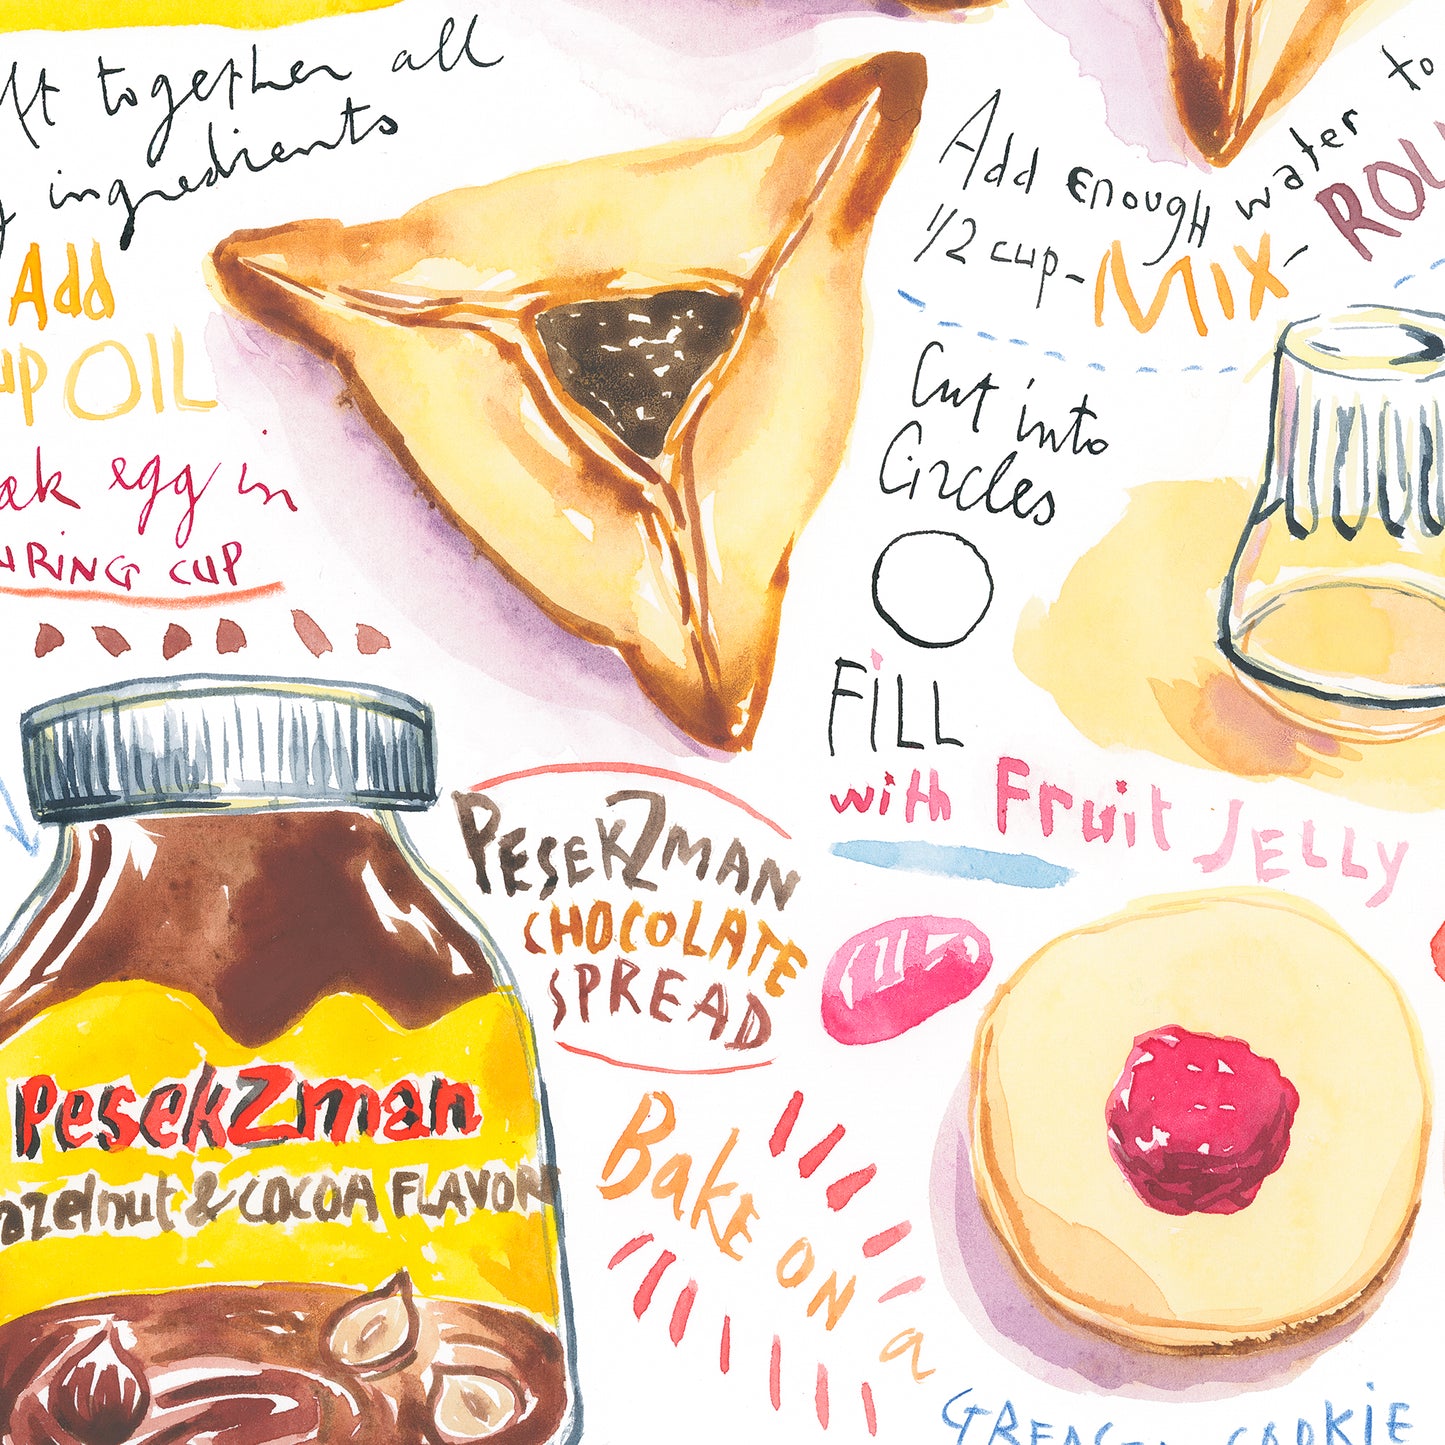 together all
ingredients
Add
OIL
egg in
CUP
Add enough water to
1/2 cup - MIX -
Cut into
Circles
FiLL
with Fruit JELLY
PESEKZMAN
CHOCOLATE
SPREAD
PesekZman
& COCOA FLAVOR
Bake ON a
COOKIE